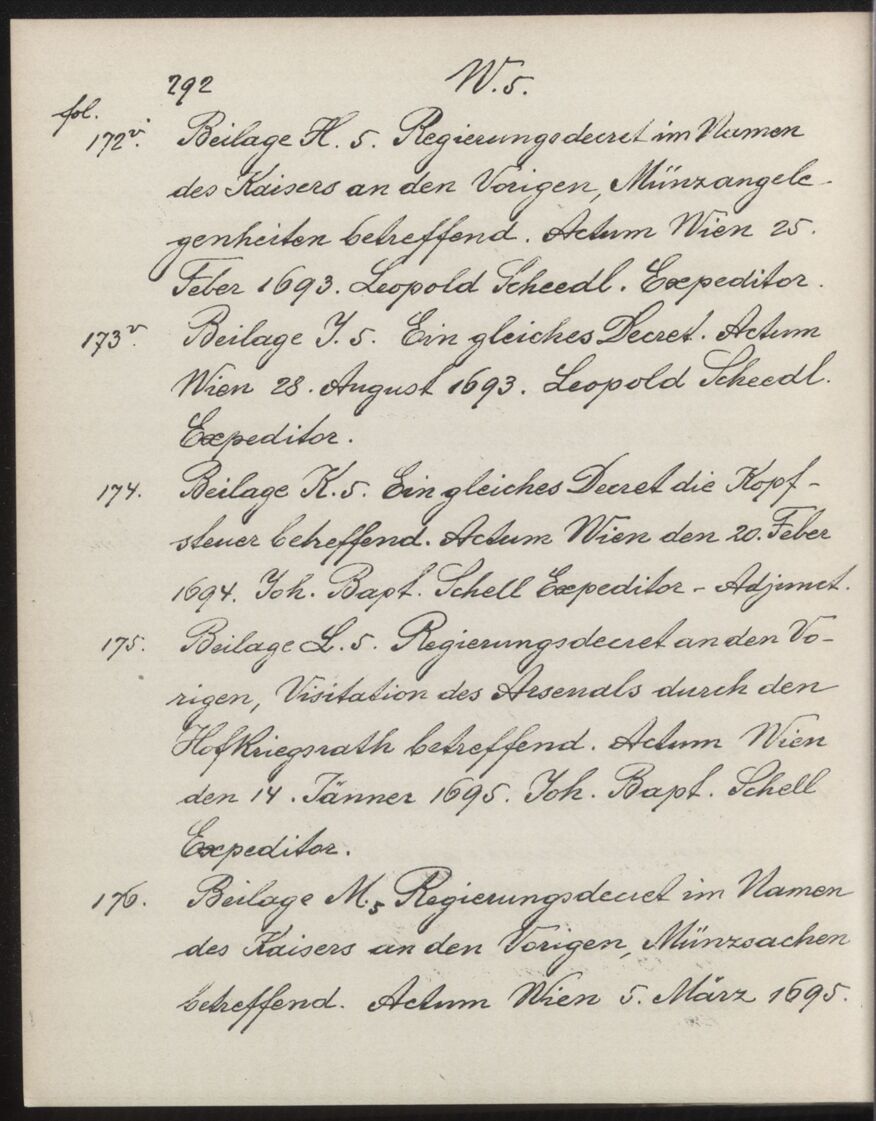 292 W. 5.
fol.
172v. Beilage H. 5. Regierungsdecret im Namen
des Kaisers an den Vorigen, Münzangele-
genheiten betreffend. Actum Wien 25.
Feber 1693. Leopold Scheedl. Expeditor.
173v. Beilage J. 5. Ein gleiches Decret. Actum
Wien 28. August 1693. Leopold Scheedl.
Expeditor.
174. Beilage K. 5. Ein gleiches Decret die Kopf-
steuer betreffend. Actum Wien den 20. Feber
1694. Joh. Bapt. Schell Expeditor-Adjunct.
175. Beilage L. 5. Regierungsdecret an den Vo-
rigen, Visitation des Arsenals durch den
Hofkriegsrath betreffend. Actum Wien
den 14. Jänner 1695. Joh. Bapt. Schell
Expeditor.
176. Beilage M. 5 Regierungsdecret im Namen
des Kaisers an den Vorigen, Münzsachen
betreffend. Actum Wien 5. März 1695.